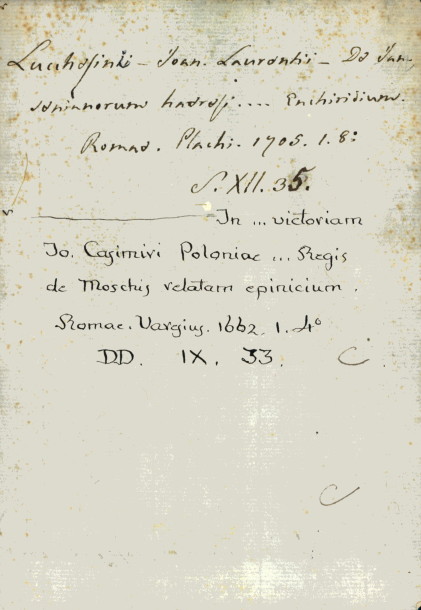 Lucchesinii - Joan. Laurentii - De Jan-
senianorum haeresi .... Enchiridium.
Romae. Plachi. 1705. 1. 8:
S. XII. 35.
In ... victoriam
Jo. Casimiri Poloniae ... Regis
de Moschis relatam epinicium.
Romae. Vargius. 1662. 1. 4°
DD. IX. 33. C
C